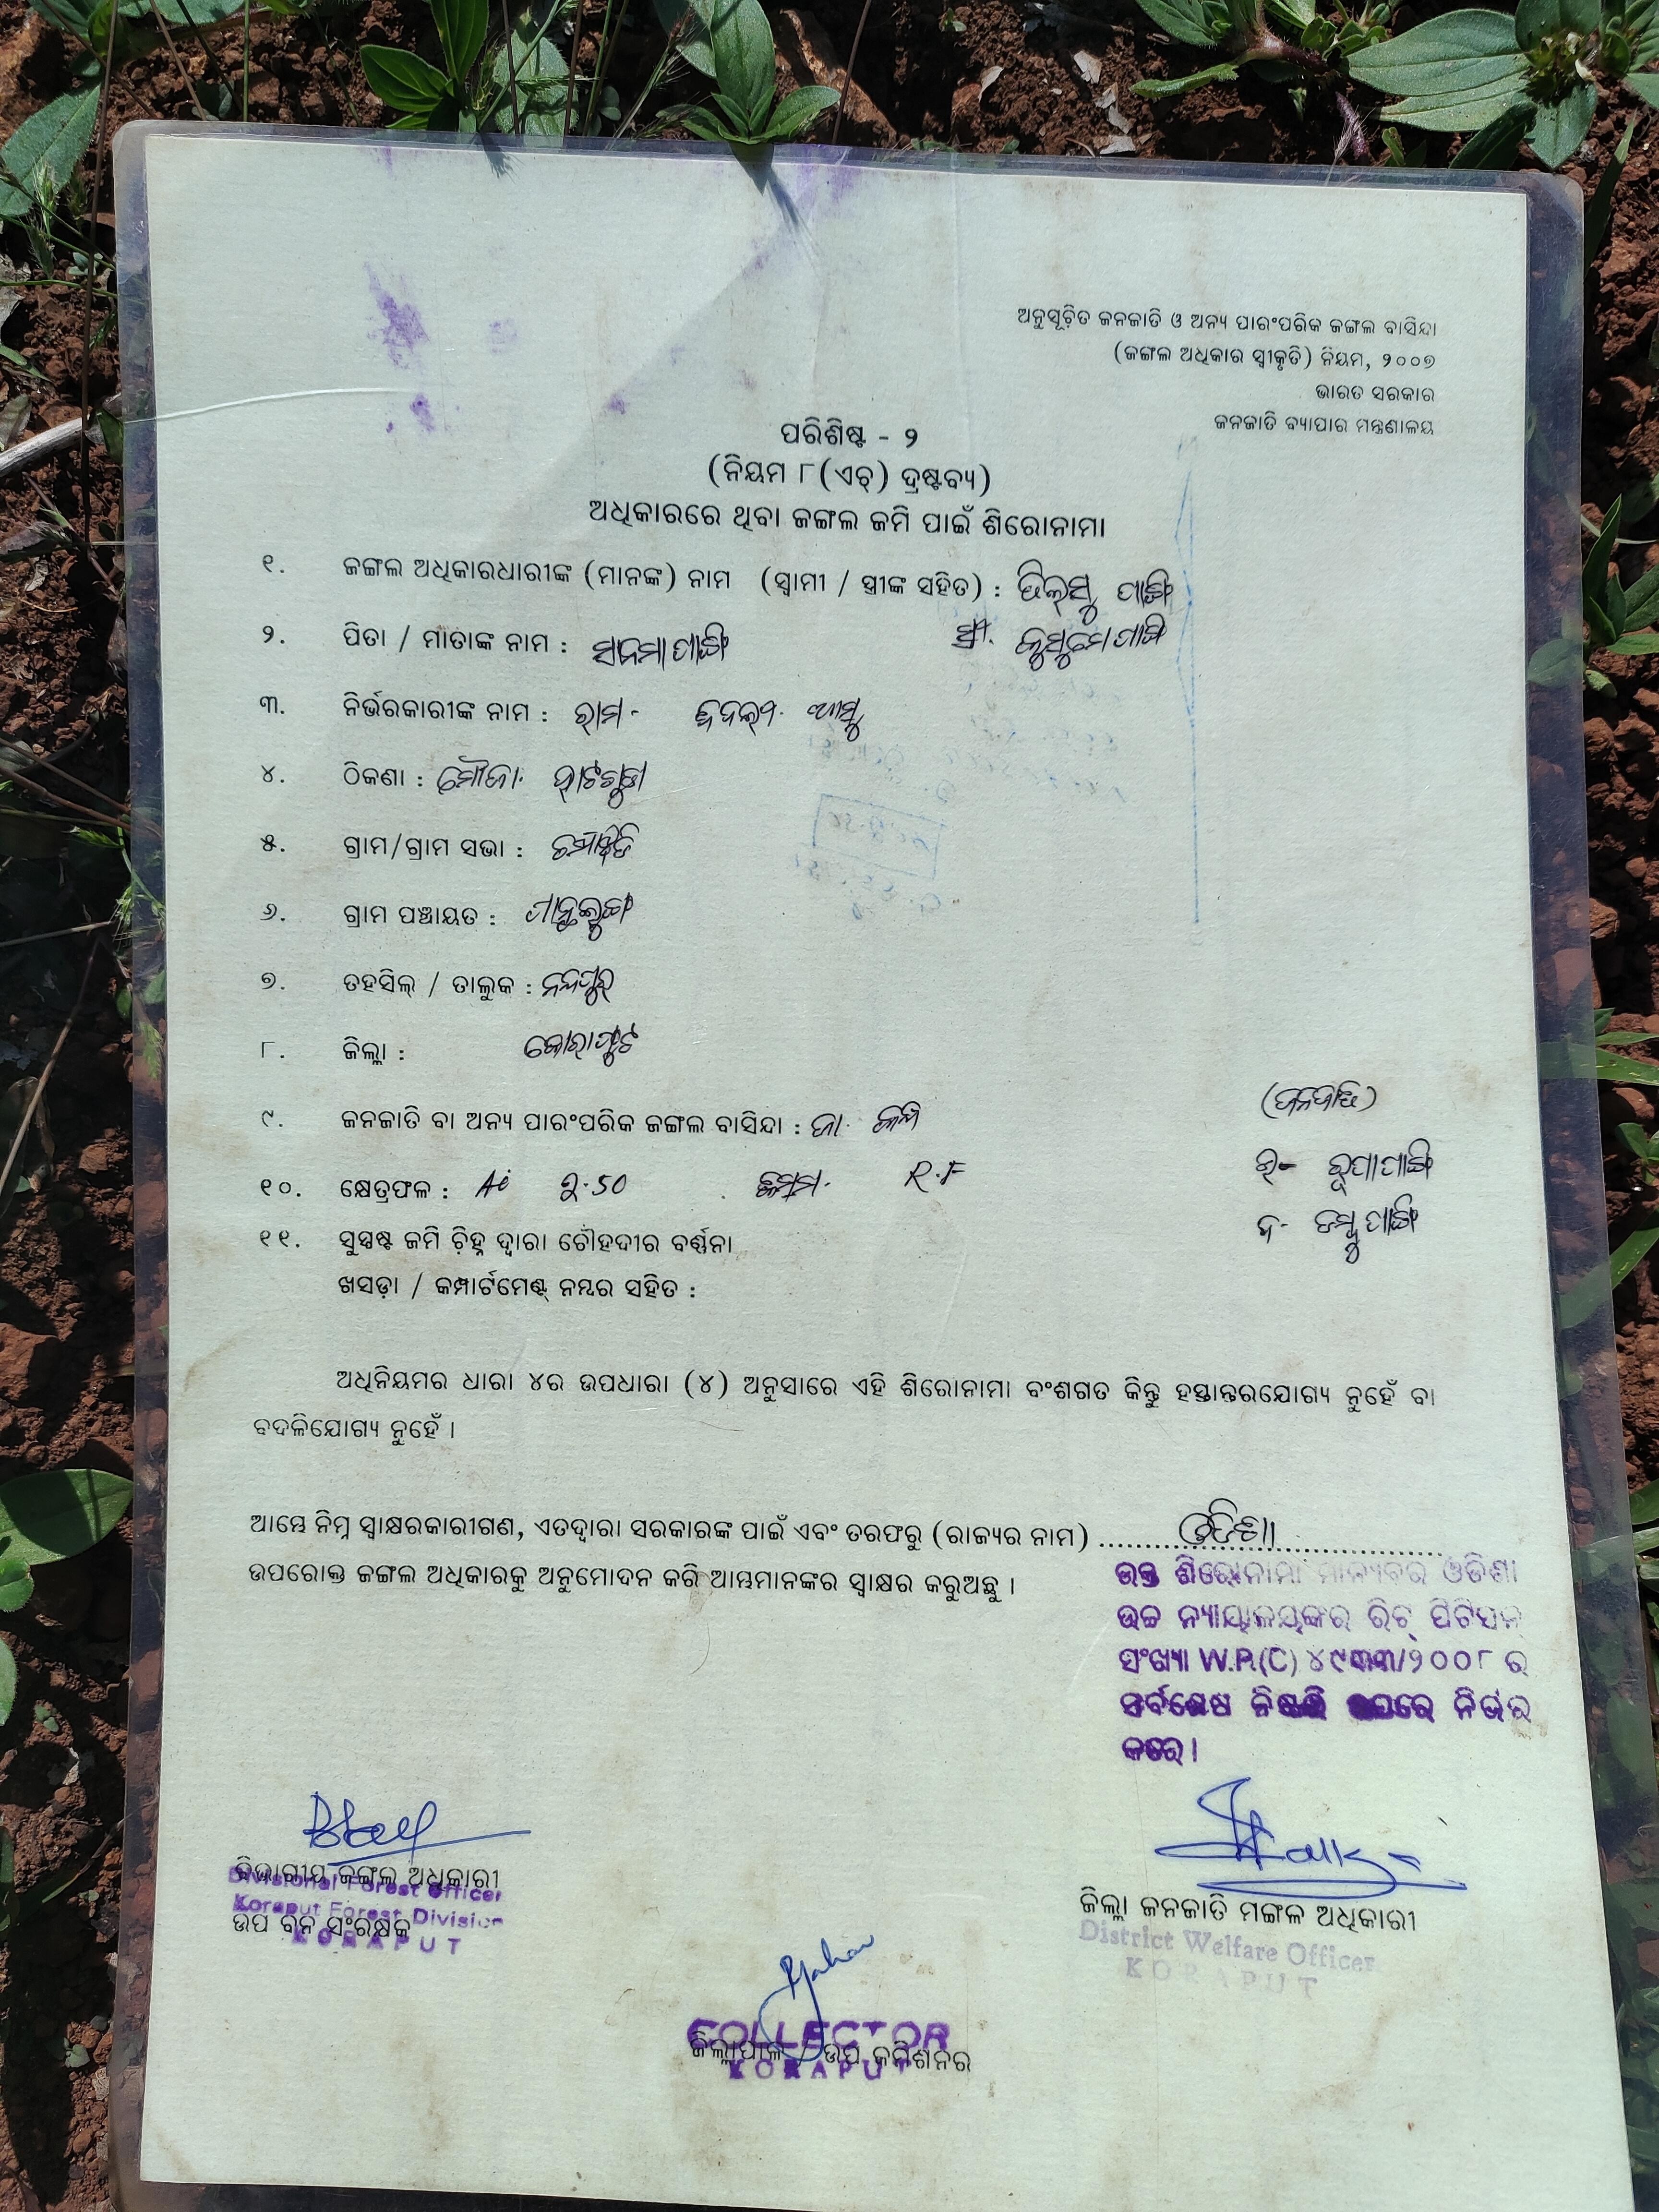 ଅନୁସୂଚିତ ଜନଜାତି ଓ ଅନ୍ୟ ପାରଂପରିକ ଜଙ୍ଗଲ ବାସିନ୍ଦା
(ଜଙ୍ଗଲ ଅଧିକାର ସ୍ୱୀକୃତି) ନିୟମ, ୨୦୦୭
ଭାରତ ସରକାର
ଜନଜାତି ବ୍ୟାପାର ମନ୍ତ୍ରଣାଳୟ
ପରିଶିଷ୍ଟ - ୨
(ନିୟମ ୮(ଏଚ୍) ଦ୍ରଷ୍ଟବ୍ୟ)
ଅଧିକାରରେ ଥିବା ଜଙ୍ଗଲ ଜମି ପାଇଁ ଶିରୋନାମା
୧. ଜଙ୍ଗଲ ଅଧିକାରଧାରୀଙ୍କ (ମାନଙ୍କ) ନାମ (ସ୍ୱାମୀ / ସ୍ତ୍ରୀଙ୍କ ସହିତ) : ପାଙ୍ଗି
୨. ପିତା / ମାତାଙ୍କ ନାମ : ସାନମା ପାଙ୍ଗି ସ୍ତ୍ରୀ. ପାଙ୍ଗି
୩. ନିର୍ଭରକାରୀଙ୍କ ନାମ : ରାମ
୪. ଠିକଣା : ମୌଜା. ହାଟଗୁଡା
୫. ଗ୍ରାମ/ଗ୍ରାମ ସଭା :
୬. ଗ୍ରାମ ପଞ୍ଚାୟତ :
୭. ତହସିଲ୍ / ତାଲୁକ : ନନ୍ଦପୁର
୮. ଜିଲ୍ଲା : କୋରାପୁଟ
୯. ଜନଜାତି ବା ଅନ୍ୟ ପାରଂପରିକ ଜଙ୍ଗଲ ବାସିନ୍ଦା :
୧୦. କ୍ଷେତ୍ରଫଳ : R.F
ରୂପା ପାଙ୍ଗି
ଦ- ପାଙ୍ଗି
୧୧. ସୁସ୍ପଷ୍ଟ ଜମି ଚିହ୍ନ ଦ୍ୱାରା ଚୌହଦୀର ବର୍ଣ୍ଣନା
ଖସଡ଼ା / କମ୍ପାର୍ଟମେଣ୍ଟ୍ ନମ୍ବର ସହିତ :
ଅଧିନିୟମର ଧାରା ୪ର ଉପଧାରା (୪) ଅନୁସାରେ ଏହି ଶିରୋନାମା ବଂଶଗତ କିନ୍ତୁ ହସ୍ତାନ୍ତରଯୋଗ୍ୟ ନୁହେଁ ବା
ବଦଳିଯୋଗ୍ୟ ନୁହେଁ ।
ଆମ୍ଭେ ନିମ୍ନ ସ୍ୱାକ୍ଷରକାରୀଗଣ, ଏତଦ୍ୱାରା ସରକାରଙ୍କ ପାଇଁ ଏବଂ ତରଫରୁ (ରାଜ୍ୟର ନାମ) ........ଓଡିଶା........
ଉପରୋକ୍ତ ଜଙ୍ଗଲ ଅଧିକାରକୁ ଅନୁମୋଦନ କରି ଆମ୍ଭମାନଙ୍କର ସ୍ୱାକ୍ଷର କରୁଅଛୁ ।
ଉକ୍ତ ଶିରୋନାମା ମାନ୍ୟବର ଓଡିଶା
ଉଚ୍ଚ ନ୍ୟାୟାଳୟଙ୍କର ରିଟ୍ ପିଟିସନ୍
ସଂଖ୍ୟା W.P.(C) ୪୯୩୩/୨୦୦୮ ର
ସର୍ବଶେଷ ନିଷ୍ପତ୍ତି ଉପରେ ନିର୍ଭର
କରେ ।
ବିଭାଗୀୟ ଜଙ୍ଗଲ ଅଧିକାରୀ
Divisional Forest Officer
Koraput Forest Division
ଉପ ବନ ସଂରକ୍ଷକ
KORAPUT
ଜିଲ୍ଲା ଜନଜାତି ମଙ୍ଗଳ ଅଧିକାରୀ
District Welfare Officer
KORAPUT
COLLECTOR
ଜିଲ୍ଲାପାଳ / ଉପ କମିଶନର
KORAPUT